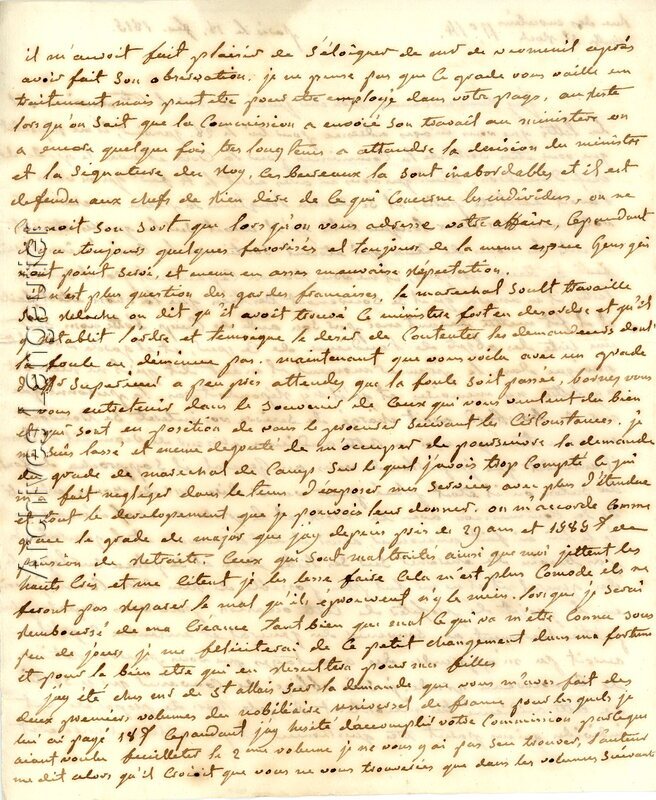 il m'avoit fait plaisir de s'éloigner de mr de vermeuil après
avoir fait son observation. je ne pense pas que le grade vous vaille un
traitement mais peut etre pour etre employé dans votre pays, au reste
lorsqu'on sait que la Commission a envoié son travail au ministere on
a encore quelque fois tres longtems a attendre la decision du ministre
et la signature du Roy, les bureaux la sont inabordables et il est
defendu aux chefs de rien dire de ce qui concerne les individus, on ne
connoit son sort que lorsqu'on vous adresse votre affaire, Cependant
il y a toujours quelques favorisés et toujours de la meme espece Gens qui
n'ont point servi, et meme en asses mauvaise réputation.
il n'est plus question des gardes francaises, le marechal Soult travaille
sans relache on dit qu'il avoit trouvé ce ministere fort en desordre et qu'il
y retablit l'ordre et temoigne le desir de Contenter les demandeurs dont
la foule ne diminue pas. maintenant que vous voila avec un grade
Superieur a peu près attendes que la foule soit passée, bornes vous
a vous entretenir dans le souvenir de Ceux qui vous veulent du bien
et qui sont en position de vous le procurer suivant les Circonstances. je
me suis lassé et meme degouté de m'occuper de poursuivre la demande
du grade de marechal de Camp sur le quel j'avois trop Compté ce qui
m'a fait negliger dans le tems d'exposer mes services avec plus d'étendue
et tout le developement que je pouvois leur donner. on m'accorde Comme
grace le grade de major que j'ay depuis près de 29 ans et 1989# de
pension de retraite. Ceux qui sont maltraités ainsi que moi jettent les
hauts Cris et me citent je les lesse faire Cela m'est plus Comode, ils ne
feront pas reparer le mal qu'ils éprouvent n'y le mien. lorsque je serai
remboursé de ma Creance tant bien que mal ce qui va m'etre Connu sous
peu de jours, je me feliciterai de ce petit changement dans ma fortune
et pour le bien etre qui en resultera pour mes filles
j'ay été ches mr de St allais sur la demande que vous m'aves fait des
deux premiers volumes du nobiliaire universel de france pour les quels je
lui ai pagé 18# Cependant j'ay hesité d'accomplir votre Commission parceque
aiant voulu feuilleter le 2 me volume je ne vous y ai pas seu trouver, l'auteur
me dit alors qu'il Croioit que vous ne vous trouveries que dans les volumes suivants
Archives Lengaigne